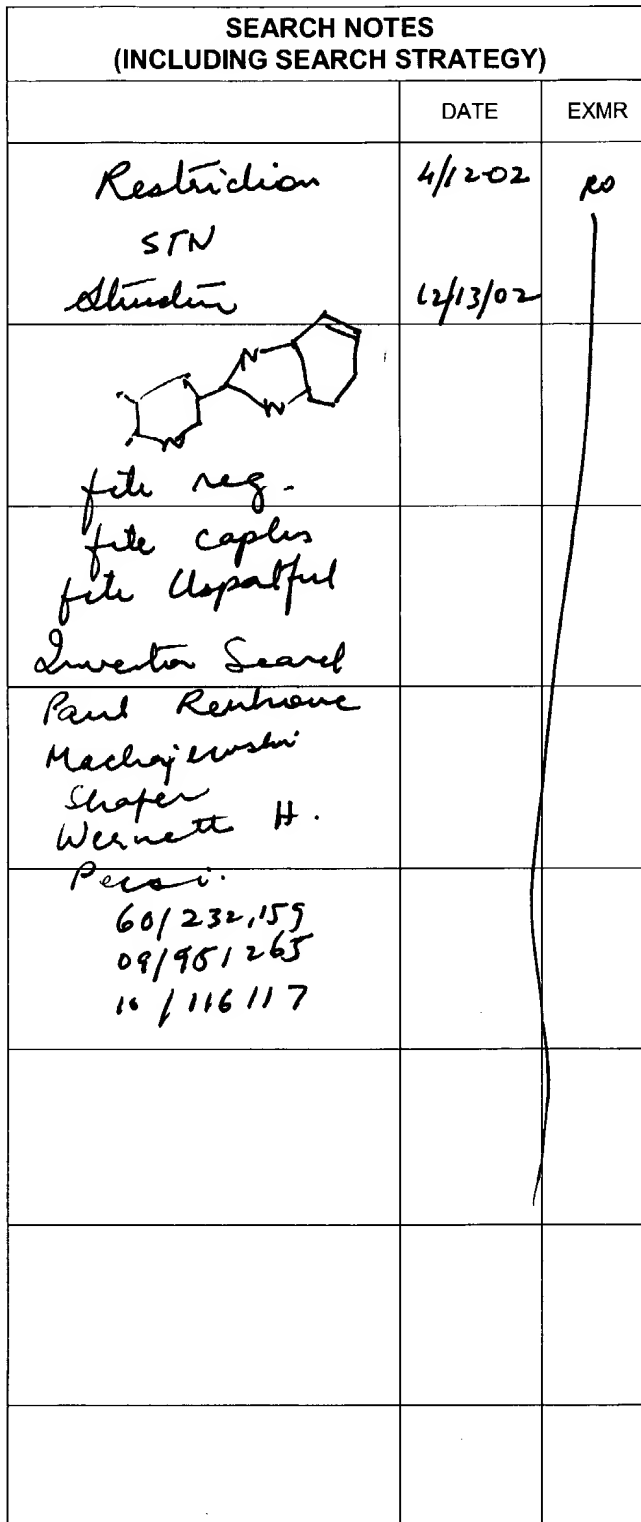 SEARCH NOTES
(INCLUDING SEARCH STRATEGY)
DATE EXMR
Restriction 4/12-02 RO
STN
12/13/02
N
N
N
file reg.
file caplus
file Uspatful
Inventor Search
Paul Renhowe
Machajewski
Shafer
Wernett H.
60/232,159
09/951265
10/116117